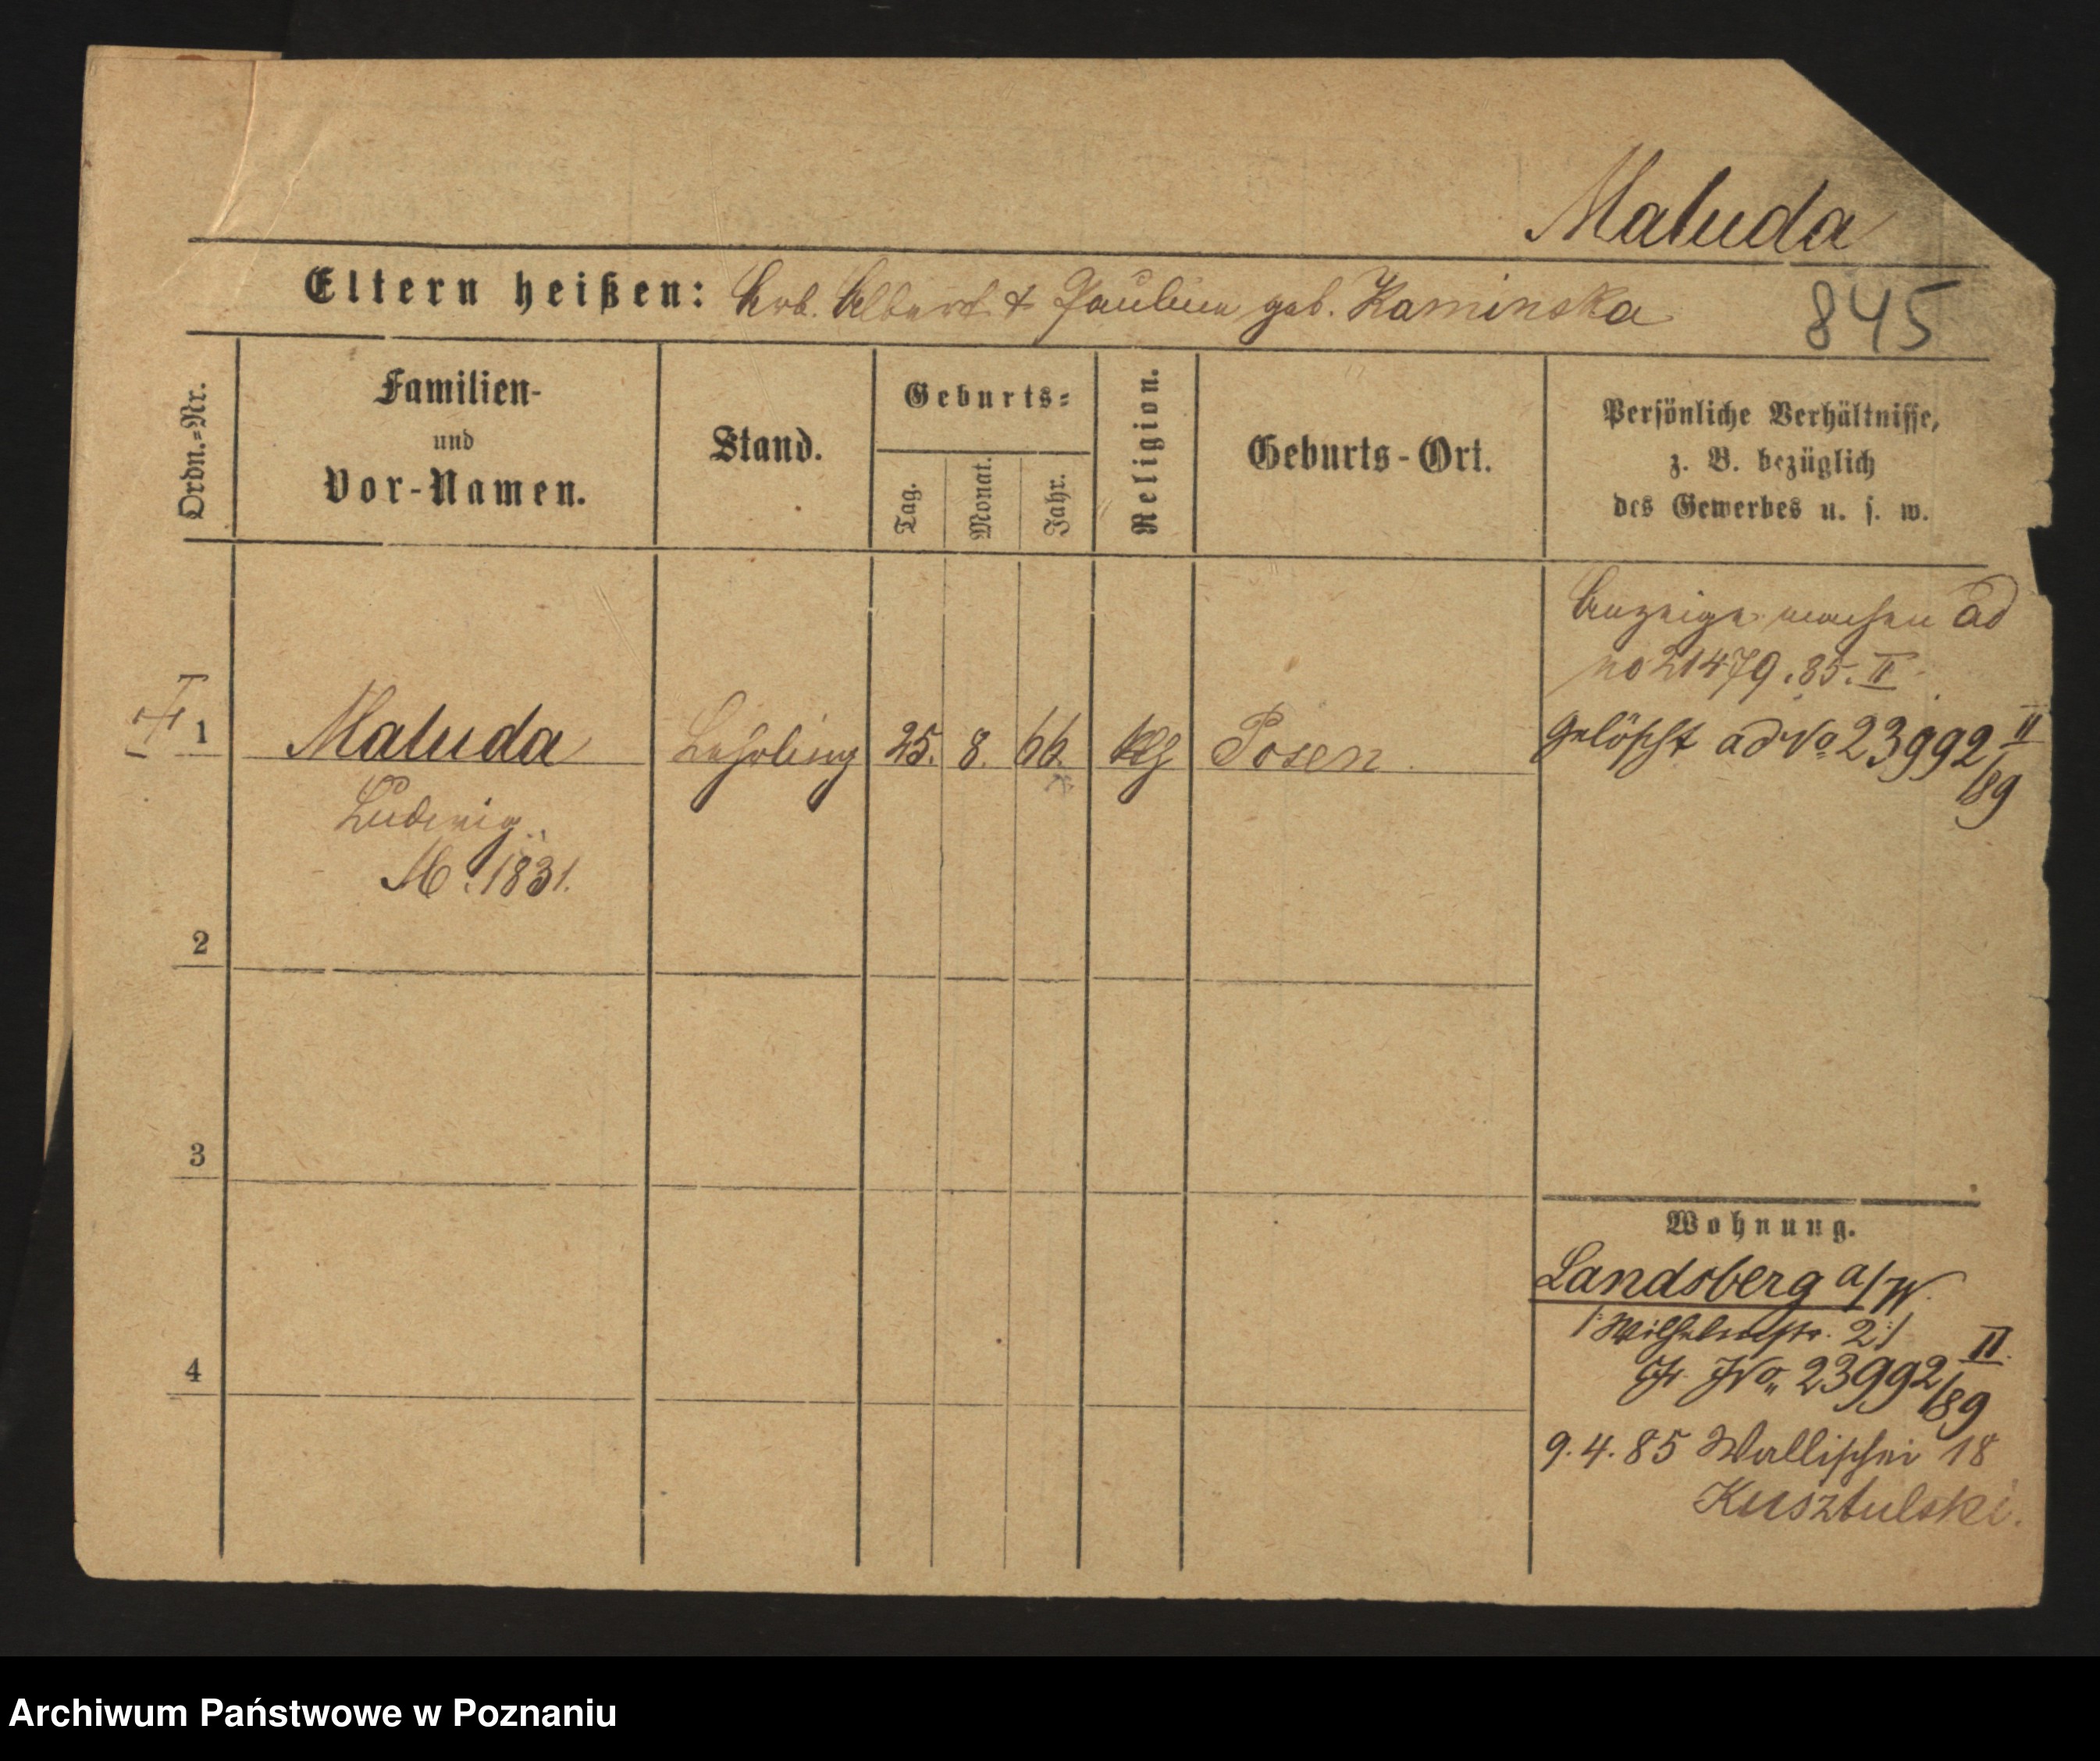 Maluda
Eltern heißen: Arb. Albert & Pauline geb. Kaminska
845
Ordn.=Nr.
Familien-
und
Vor-Namen.
Stand.
Geburts=
Tag.
Monat.
Jahr.
Religion.
Geburts-Ort.
Persönliche Verhältnisse,
z. B. bezüglich
des Gewerbes u. s. w.
Anzeige machen ad
no 21479.85. II
1 Maluda Lehrling 25. 8. 66. Posen
gelöscht ad No 23992 II/89
Ludwig
M. 1831.
2
3
4
Wohnung.
Landsberg a/W.
/: Wilhelmstr. 2 :/
Jr. No. 23992 II/89
9.4.85 Wallischei 18
Kusztulski.
Archiwum Państwowe w Poznaniu